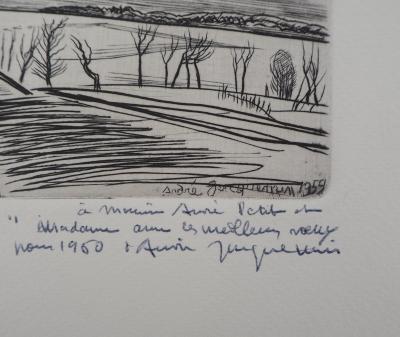 André Jacquemin 1959
à Monsieur André Petit et
Madame avec les meilleurs vœux
pour 1960 André Jacquemin